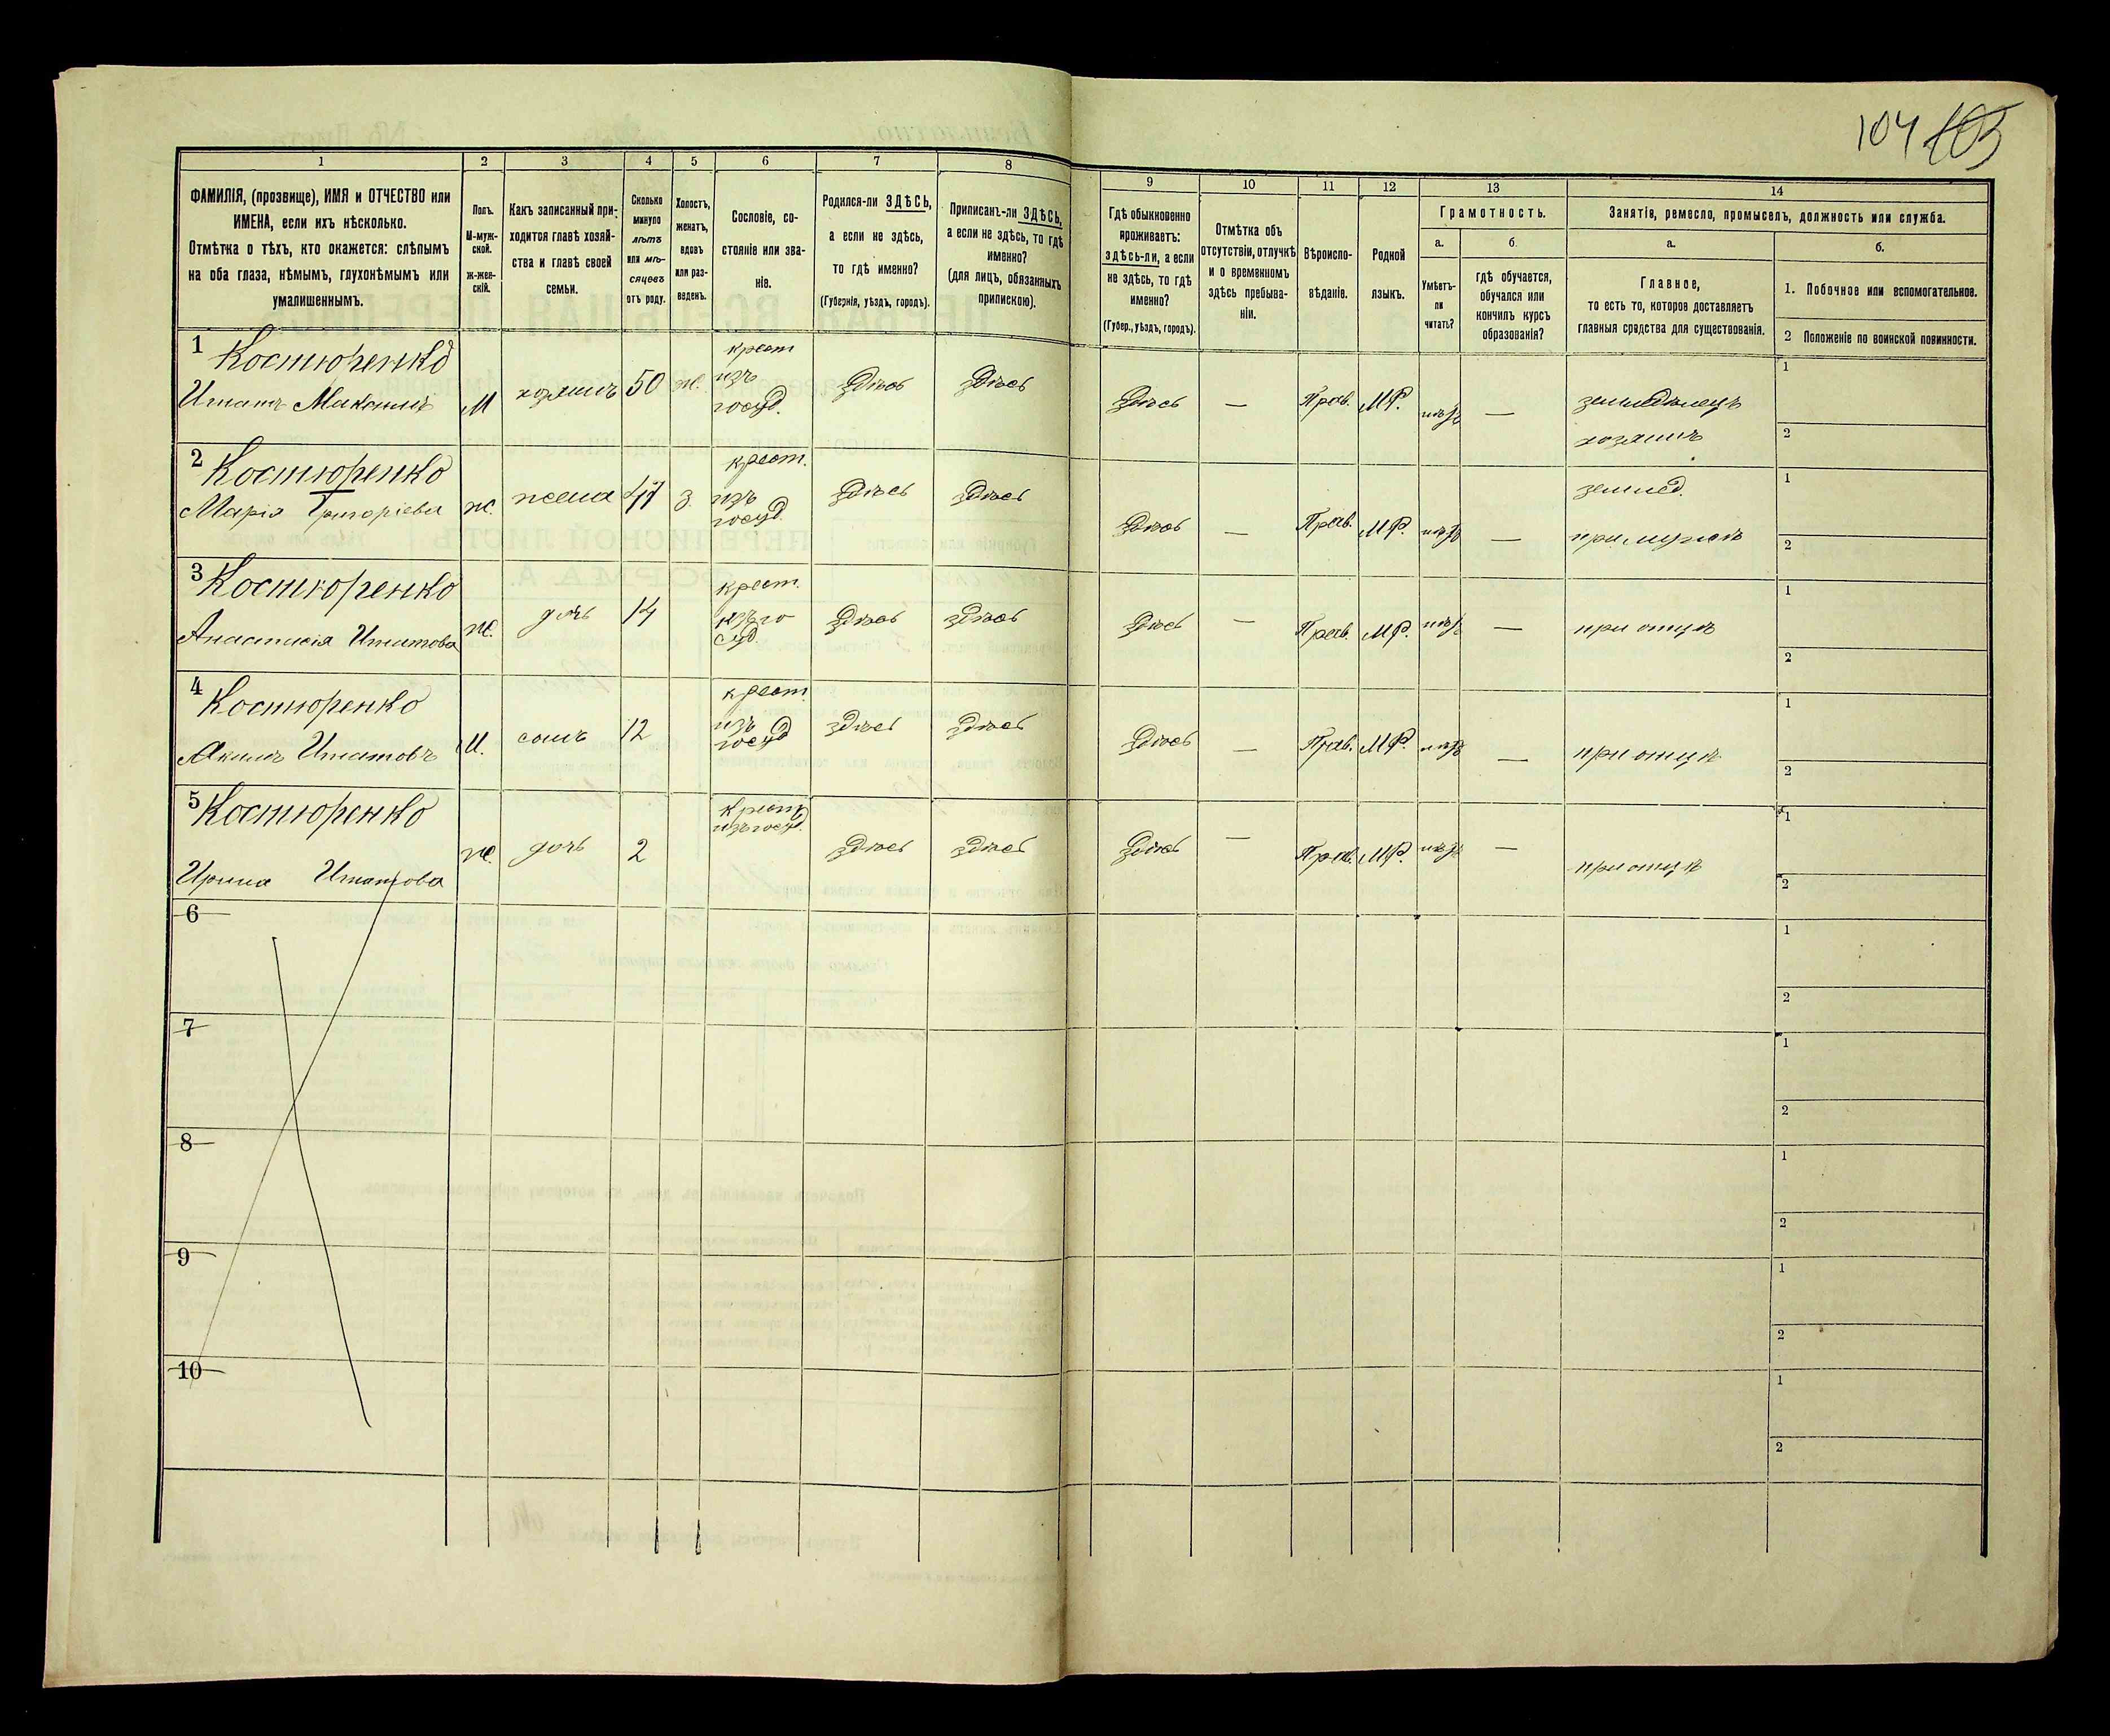 104 105
1 2 3 4 5 6 7 8 9 10 11 12 13 14
ФАМИЛІЯ, (прозвище), ИМЯ и ОТЧЕСТВО или
ИМЕНА, если ихъ нѣсколько.
Отмѣтка о тѣхъ, кто окажется: слѣпымъ
на оба глаза, нѣмымъ, глухонѣмымъ или
умалишеннымъ.
Полъ.
М-муж-
ской.
ж-жен-
скій.
Какъ записанный при-
ходится главѣ хозяй-
ства и главѣ своей
семьи.
Сколько
минуло
лѣтъ
или мѣ-
сяцевъ
отъ роду.
Холостъ,
женатъ,
вдовъ
или раз-
веденъ.
Сословіе, со-
стояніе или зва-
ніе.
Родился-ли ЗДѢСЬ,
а если не здѣсь,
то гдѣ именно?
(Губернія, уѣздъ, городъ).
Приписанъ-ли ЗДѢСЬ,
а если не здѣсь, то гдѣ
именно?
(для лицъ, обязанныхъ
припискою).
Гдѣ обыкновенно
проживаетъ:
здѣсь-ли, а если
не здѣсь, то гдѣ
именно?
(Губер., уѣздъ, городъ).
Отмѣтка объ
отсутствіи, отлучкѣ
и о временномъ
здѣсь пребыва-
ніи.
Вѣроиспо-
вѣданіе.
Родной
языкъ.
Грамотность.
а.
Умѣетъ-
ли
читать?
б.
гдѣ обучается,
обучался или
кончилъ курсъ
образованія?
Занятіе, ремесло, промыселъ, должность или служба.
а.
Главное,
то есть то, которое доставляетъ
главныя средства для существованія.
б.
1. Побочное или вспомогательное.
2 Положеніе по воинской повинности.
1 Костюренко
Игнатъ Максимъ
М хозяинъ 50 ж.
крест
изъ
госуд.
здѣсь здѣсь здѣсь — Прав. М.Р. —
земледѣлецъ
хозяинъ
1
2
2 Костюренко
Марія Григоріева
ж. жена 47 з.
крест.
изъ
госуд.
здѣсь здѣсь здѣсь — Прав. М.Р. —
землед.
при мужѣ
1
2
3 Костюренко
Анастасія Игнатова
ж. дочь 14
крест.
изъ го
суд.
здѣсь здѣсь здѣсь — Прав. М.Р. —
при отцѣ
1
2
4 Костюренко
Акимъ Игнатовъ
М. сынъ 12
крест
изъ
госуд
здѣсь здѣсь здѣсь — Прав. М.Р. —
при отцѣ
1
2
5 Костюренко
Ирина Игнатова
ж. дочь 2
крест
изъ госуд.
здѣсь здѣсь здѣсь — Прав. М.Р. —
при отцѣ
1
2
6
1
2
7
1
2
8
1
2
9
1
2
10
1
2